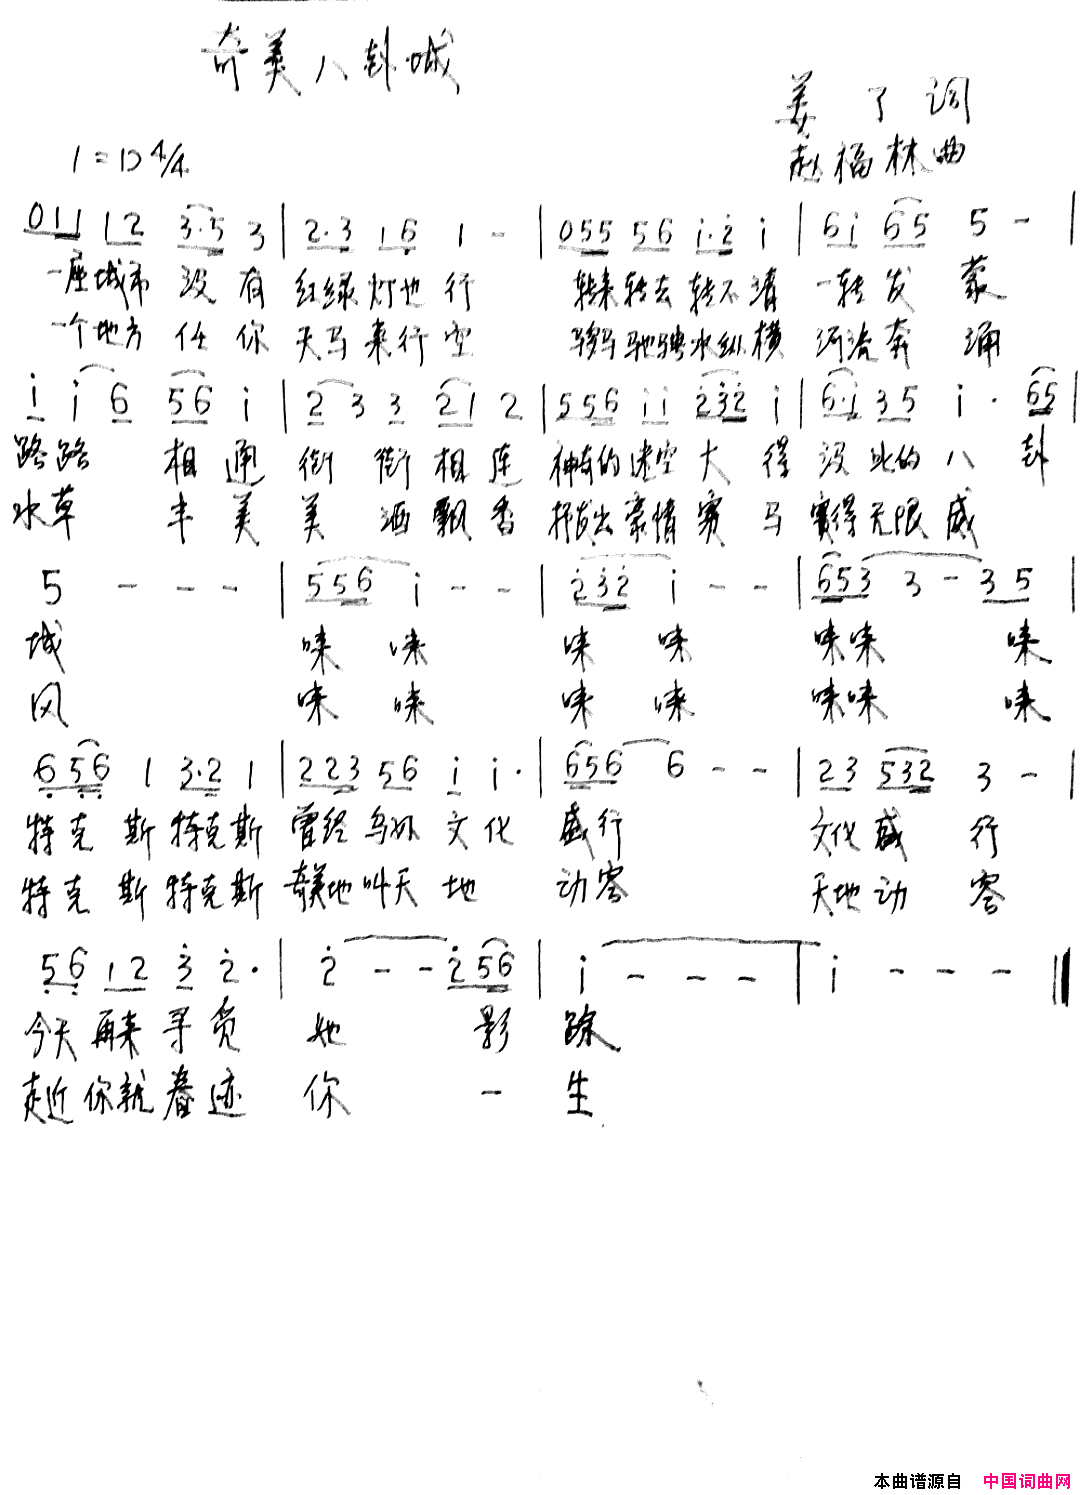 奇美八卦城
姜 了 词
1=D 4/4
赵福林曲
0 1 1 1 2 3·5 3 | 2·3 1 6 1 - | 0 5 5 5 6 i·2 i | 6 i 6 5 5 - |
一座城市 没有 红绿灯也行 转来转去 转不清 一转发 蒙
一个地方 任你 天马来行空 驰骋 纵横 奔 涌
i i 6 5 6 i | 2 3 3 2 1 2 | 5 5 6 i i 2 3 2 i | 6·i 3 5 i· 6 5 |
路路 相通 街 街相连 神奇的迷空大 得 没 的八 卦
水草 丰美 美 酒飘香 出豪情赛 马 赛得无限威
5 - - - | 5 5 6 i - - | 2 3 2 i - - | 6 5 3 3 - 3 5 |
城 唻 唻 唻 唻 唻唻 唻
风 唻 唻 唻 唻 唻唻 唻
6 5 6 1 3·2 1 | 2 2 3 5 6 i i· | 6 5 6 6 - - | 2 3 5 3 2 3 - |
特克 斯 特克斯 曾经乌孙 文化 盛行 文化盛 行
特克 斯 特克斯 奇美地叫天 地 动容 天地动 容
5 6 1 2 3 2· | 2 - - 2 5 6 | i - - - | i - - - ‖
今天 再来 寻觅 她 影 踪
走近 你就 眷 你 一 生
本曲谱源自 中国词曲网